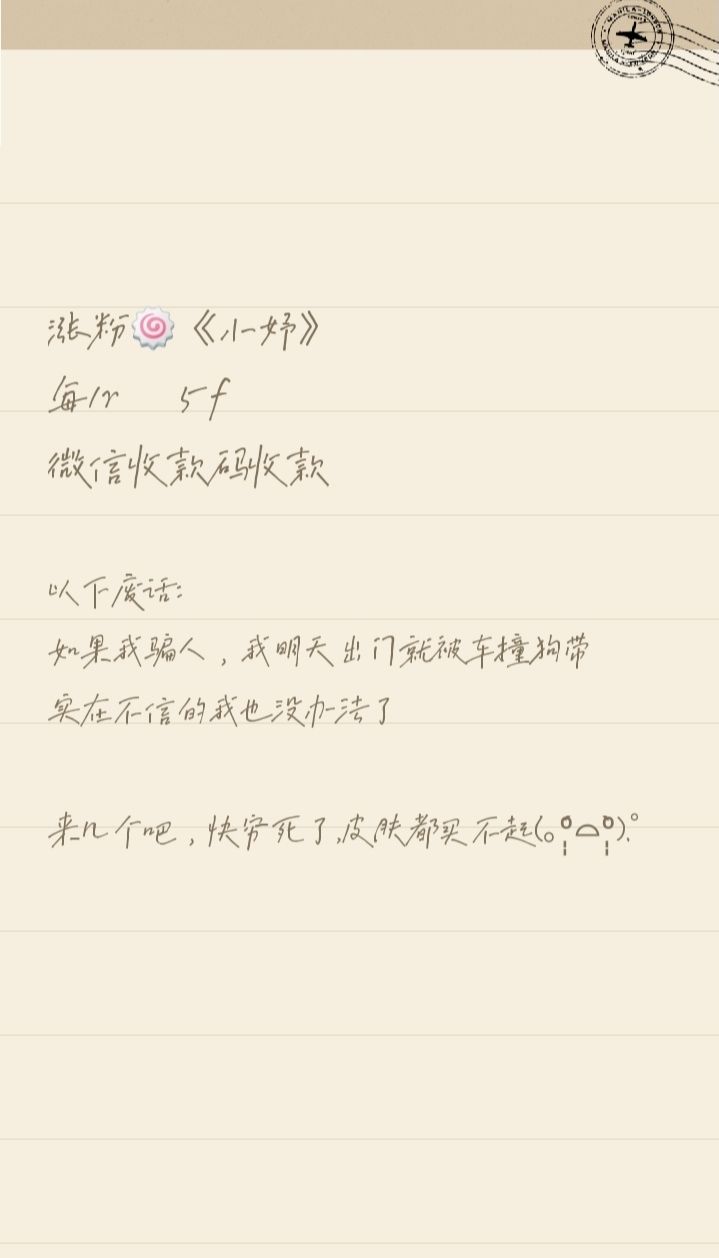 涨粉🍥《小妤》
每1r 5f
微信收款码收款
以下废话:
如果我骗人，我明天出门就被车撞狗带
实在不信的我也没办法了
来几个吧，快穷死了,皮肤都买不起(｡ŏ̥̥̥̥םŏ̥̥̥̥).°